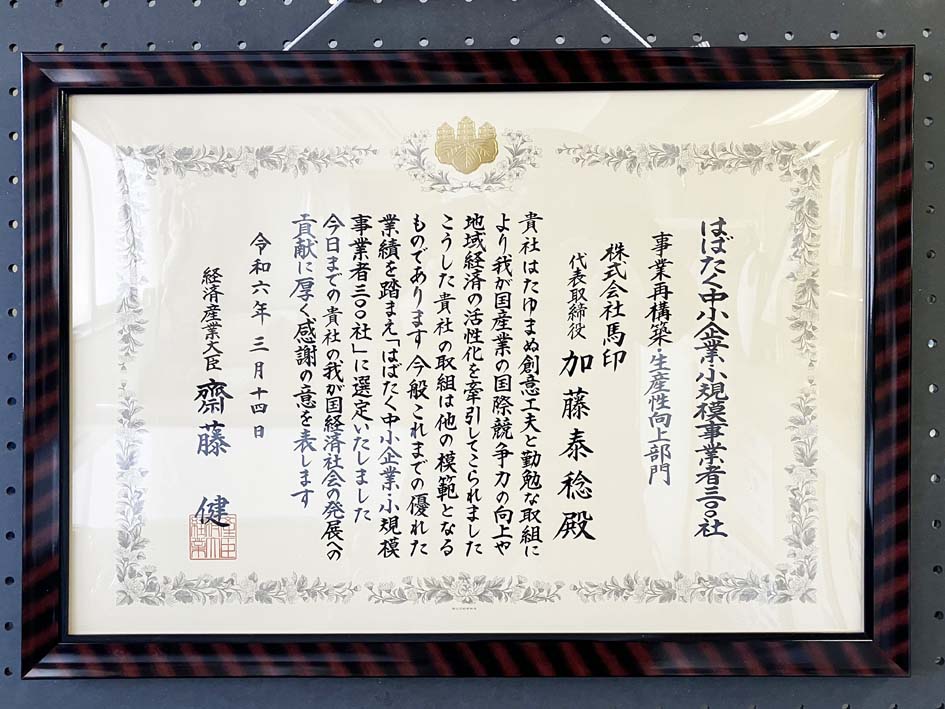 はばたく中小企業・小規模事業者三〇〇社
事業再構築・生産性向上部門
株式会社馬印
代表取締役 加藤泰稔殿
貴社はたゆまぬ創意工夫と勤勉な取組に
より我が国産業の国際競争力の向上や
地域経済の活性化を牽引してこられました
こうした貴社の取組は他の模範となる
ものであります 今般これまでの優れた
業績を踏まえ「はばたく中小企業・小規模
事業者三〇〇社」に選定いたしました
今日までの貴社の我が国経済社会の発展への
貢献に厚く感謝の意を表します
令和六年三月十四日
経済産業大臣 齋藤 健